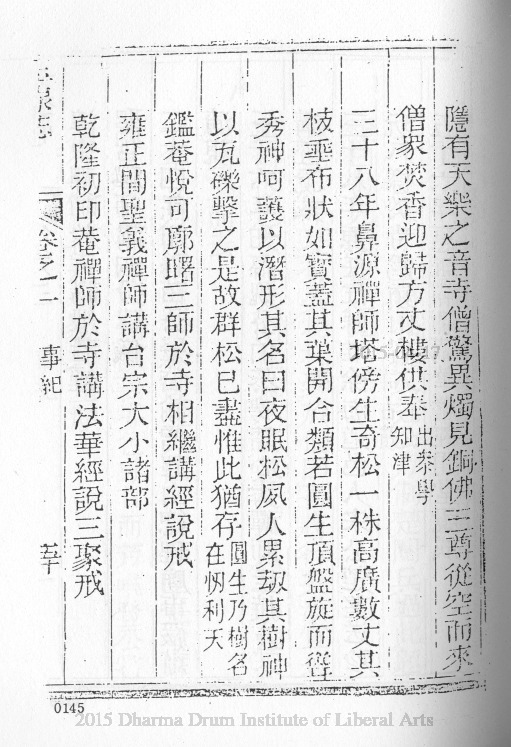 隱有天樂之音寺僧驚異燭見銅佛三尊從空而來
僧眾焚香迎歸方丈樓供奉出叅學知津
三十八年鼻源禪師塔傍生奇松一株高廣數丈其
枝垂布狀如寶蓋其葉開合類若圓生頂盤旋而聳
秀神呵護以潛形其名曰夜眠松夙人累劫其樹神
以瓦礫擊之是故群松已盡惟此猶存圓生乃樹名在忉利天
鑑菴悅可廓曙三師於寺相繼講經說戒
雍正間聖義禪師講台宗大小諸部
乾隆初印菴禪師於寺講法華經說三聚戒
泉志 卷之一 事紀
0145
2015 Dharma Drum Institute of Liberal Arts